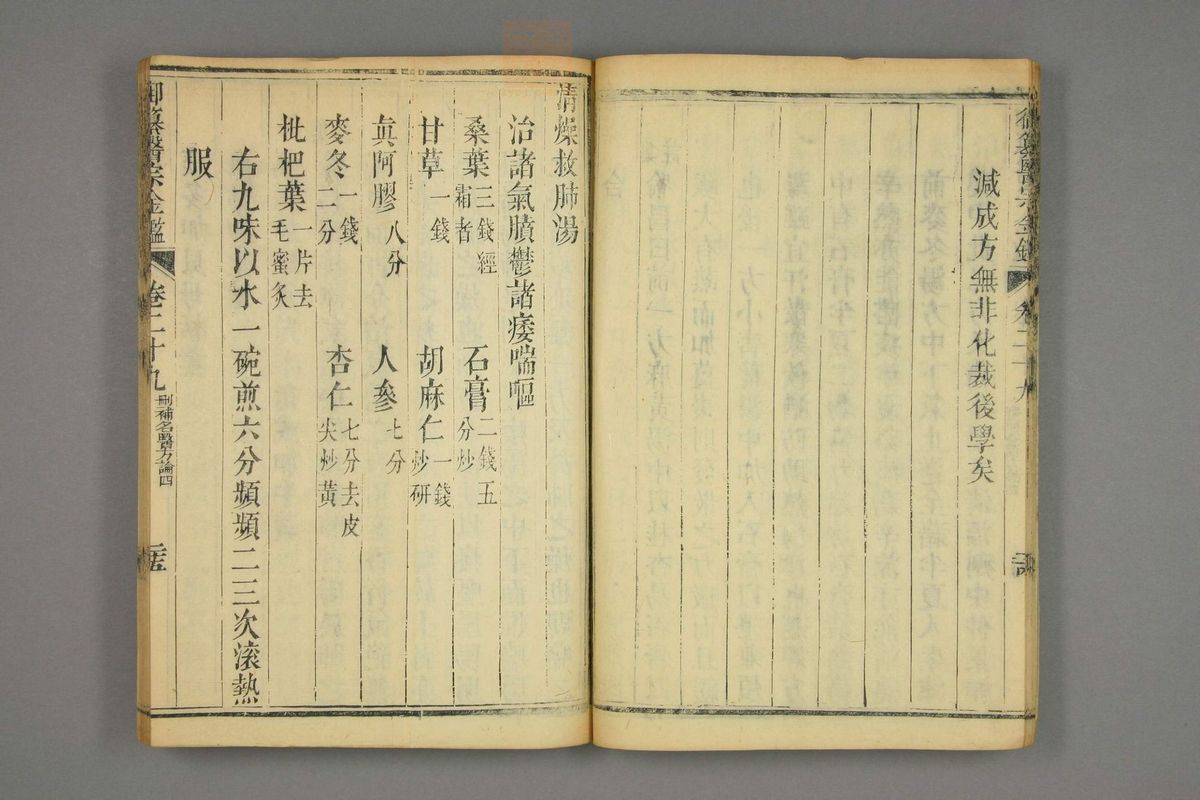 御纂醫宗金鑑 卷二十九
減成方無非化裁後學矣
清燥救肺湯
治諸氣膹鬱諸痿喘嘔
桑葉三錢經霜者 石膏二錢五分炒
甘草一錢 胡麻仁一錢炒研
眞阿膠八分 人參七分
麥冬一錢二分 杏仁七分去皮尖炒黃
枇杷葉一片去毛蜜炙
右九味以水一碗煎六分頻頻二三次滚熱
服
御纂醫宗金鑑 卷二十九 刪補名醫方論四 二五